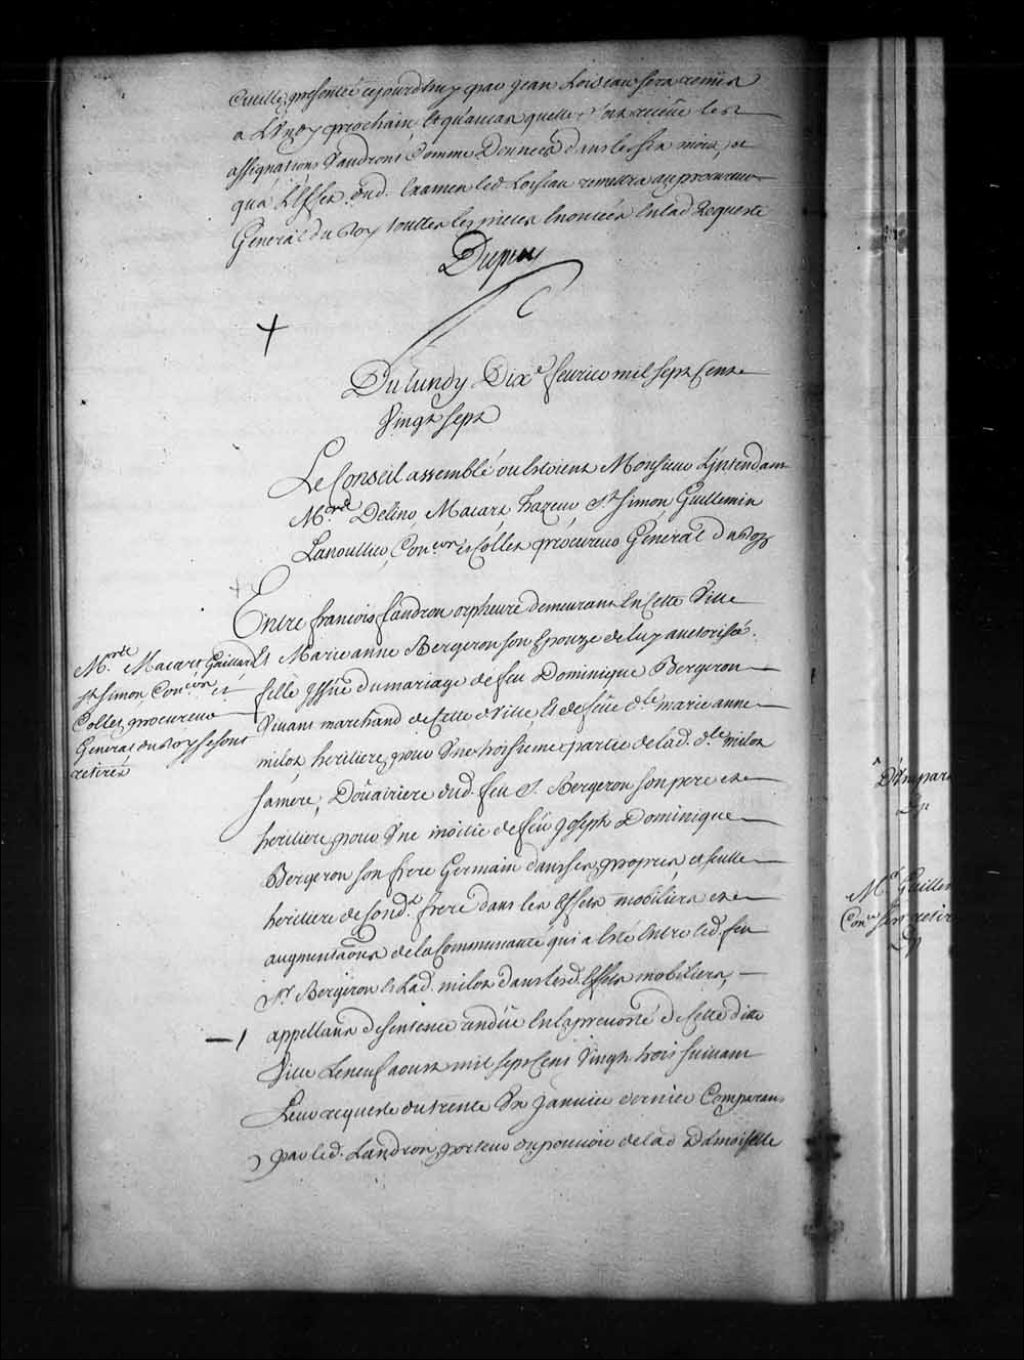 Cueille, presentée ce jourd'huy par Jean Loiseau sera remise
a Lundy prochain, et qu'au cas quelle soit receue les
assignations vaudront comme Données dans les six mois, et
qua L'effet dud. Examen led. Loiseau remettra au procureur
General du Roy touttes les pieces Enoncées En lad. Requeste
Dupuy
Du lundy Dixe feurier mil sept Cent
Vingt sept
Le Conseil assemblé ou Estoient Monsieur L'intendant
Mrs Delino Macart hazeur St Simon Guillemin
Lanoullier Coners et Collet procureur General du Roy
Entre francois Landron orpheure demeurant En Cette Ville
Et Marie anne Bergeron son Epouze de luy authorisée
fille Issüe du mariage de feu Dominique Bergeron
Viuant marchand de Cette Ville Et de feüe dle marie anne
milot heritiere pour Une troisieme partie de lad. dle milot
sa mere, Doüairiere dud. feu S. Bergeron son pere et
heritiere pour Une moitié de feü Joseph Dominique
Bergeron son frere Germain dans ses propres, et seulle
heritiere de sond. frere dans les Effets mobiliers et
augmentaõns de la Communauté qui a Esté Entre led. feu
Sr Bergeron Et Lad. milot dans lesd. Effets mobiliers,
appellans de sentence rendüe En la preuosté de Cette ditte
Ville Le neuf aoust mil sept Cent Vingt trois suiuant
Leur requeste du trente Un Januier dernier Comparant
par led. Landron porteur du pouuoir de lad. Damoiselle
Mrs Macart Gaillard
St Simon Coners et
Collet procureur
General du Roy se sont
retirés
Mr Guillemin
Coner s'est retiré